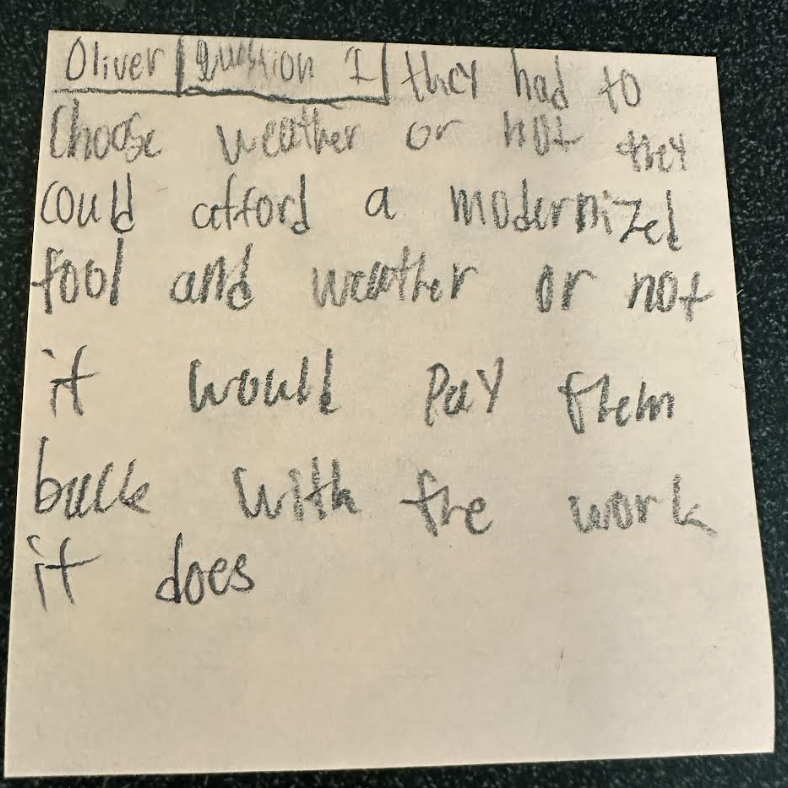 Oliver | Question 1 | they had to
Choose weather or not they
could afford a modernized
tool and weather or not
it would pay them
back with the work
it does